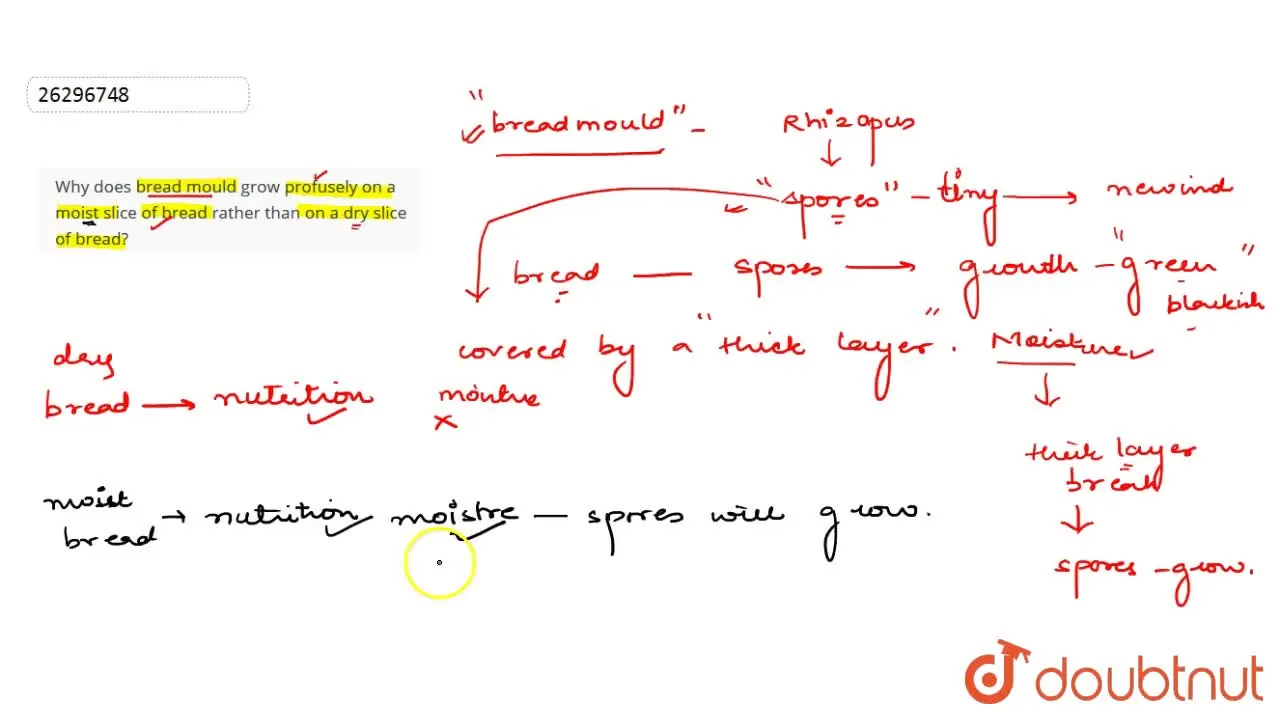 26296748
Why does bread mould grow profusely on a
moist slice of bread rather than on a dry slice
of bread?
"breadmould" -
Rhizopus
"spores" - tiny → new ind
bread — spores → growth - "green"
blackish
covered by a "thick layer". Moisture
dry
bread → nutrition
thick layer
break
spores - grow.
moist
bread → nutrition moistre — spores will grow.
doubtnut